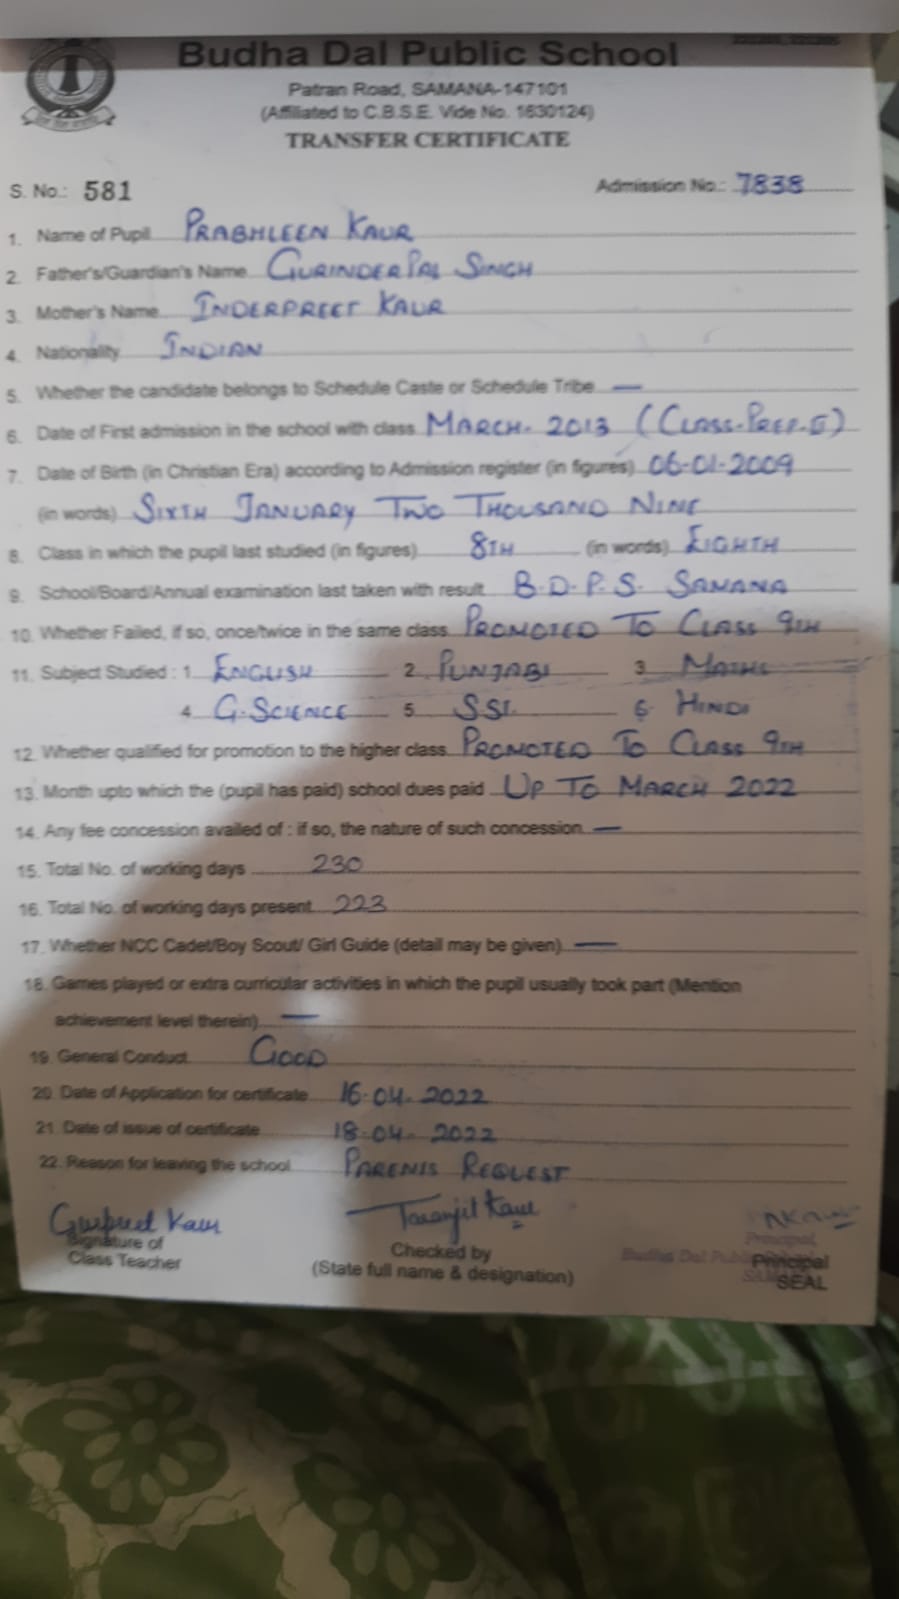 Budha Dal Public School
Patran Road, SAMANA-147101
(Affiliated to C.B.S.E. Vide No. 1630124)
TRANSFER CERTIFICATE
S. No.: 581 Admission No.: 7838
1. Name of Pupil PRABHLEEN KAUR
2. Father's/Guardian's Name GURINDERPAL SINGH
3. Mother's Name INDERPREET KAUR
4. Nationality INDIAN
5. Whether the candidate belongs to Schedule Caste or Schedule Tribe —
6. Date of First admission in the school with class MARCH- 2013 (CLASS-PREP-II)
7. Date of Birth (in Christian Era) according to Admission register (in figures) 06-01-2009
(in words) SIXTH JANUARY TWO THOUSAND NINE
8. Class in which the pupil last studied (in figures) 8TH (in words) EIGHTH
9. School/Board/Annual examination last taken with result B.D.P.S. SAMANA
10. Whether Failed, if so, once/twice in the same class PROMOTED TO CLASS 9TH
11. Subject Studied : 1 ENGLISH 2. PUNJABI 3 MATHS
4 G.SCIENCE 5 SST. 6 HINDI
12. Whether qualified for promotion to the higher class PROMOTED TO CLASS 9TH
13. Month upto which the (pupil has paid) school dues paid UP TO MARCH 2022
14. Any fee concession availed of : if so, the nature of such concession —
15. Total No. of working days 230
16. Total No. of working days present 223
17. Whether NCC Cadet/Boy Scout/ Girl Guide (detail may be given) —
18. Games played or extra curricular activities in which the pupil usually took part (Mention
achievement level therein) —
19. General Conduct GOOD
20. Date of Application for certificate 16-04-2022
21. Date of issue of certificate 18-04-2022
22. Reason for leaving the school PARENTS REQUEST
Gurpreet Kaur Taranjit Kaur
Signature of Checked by Principal
Class Teacher (State full name & designation) SEAL
Principal
Budha Dal Public